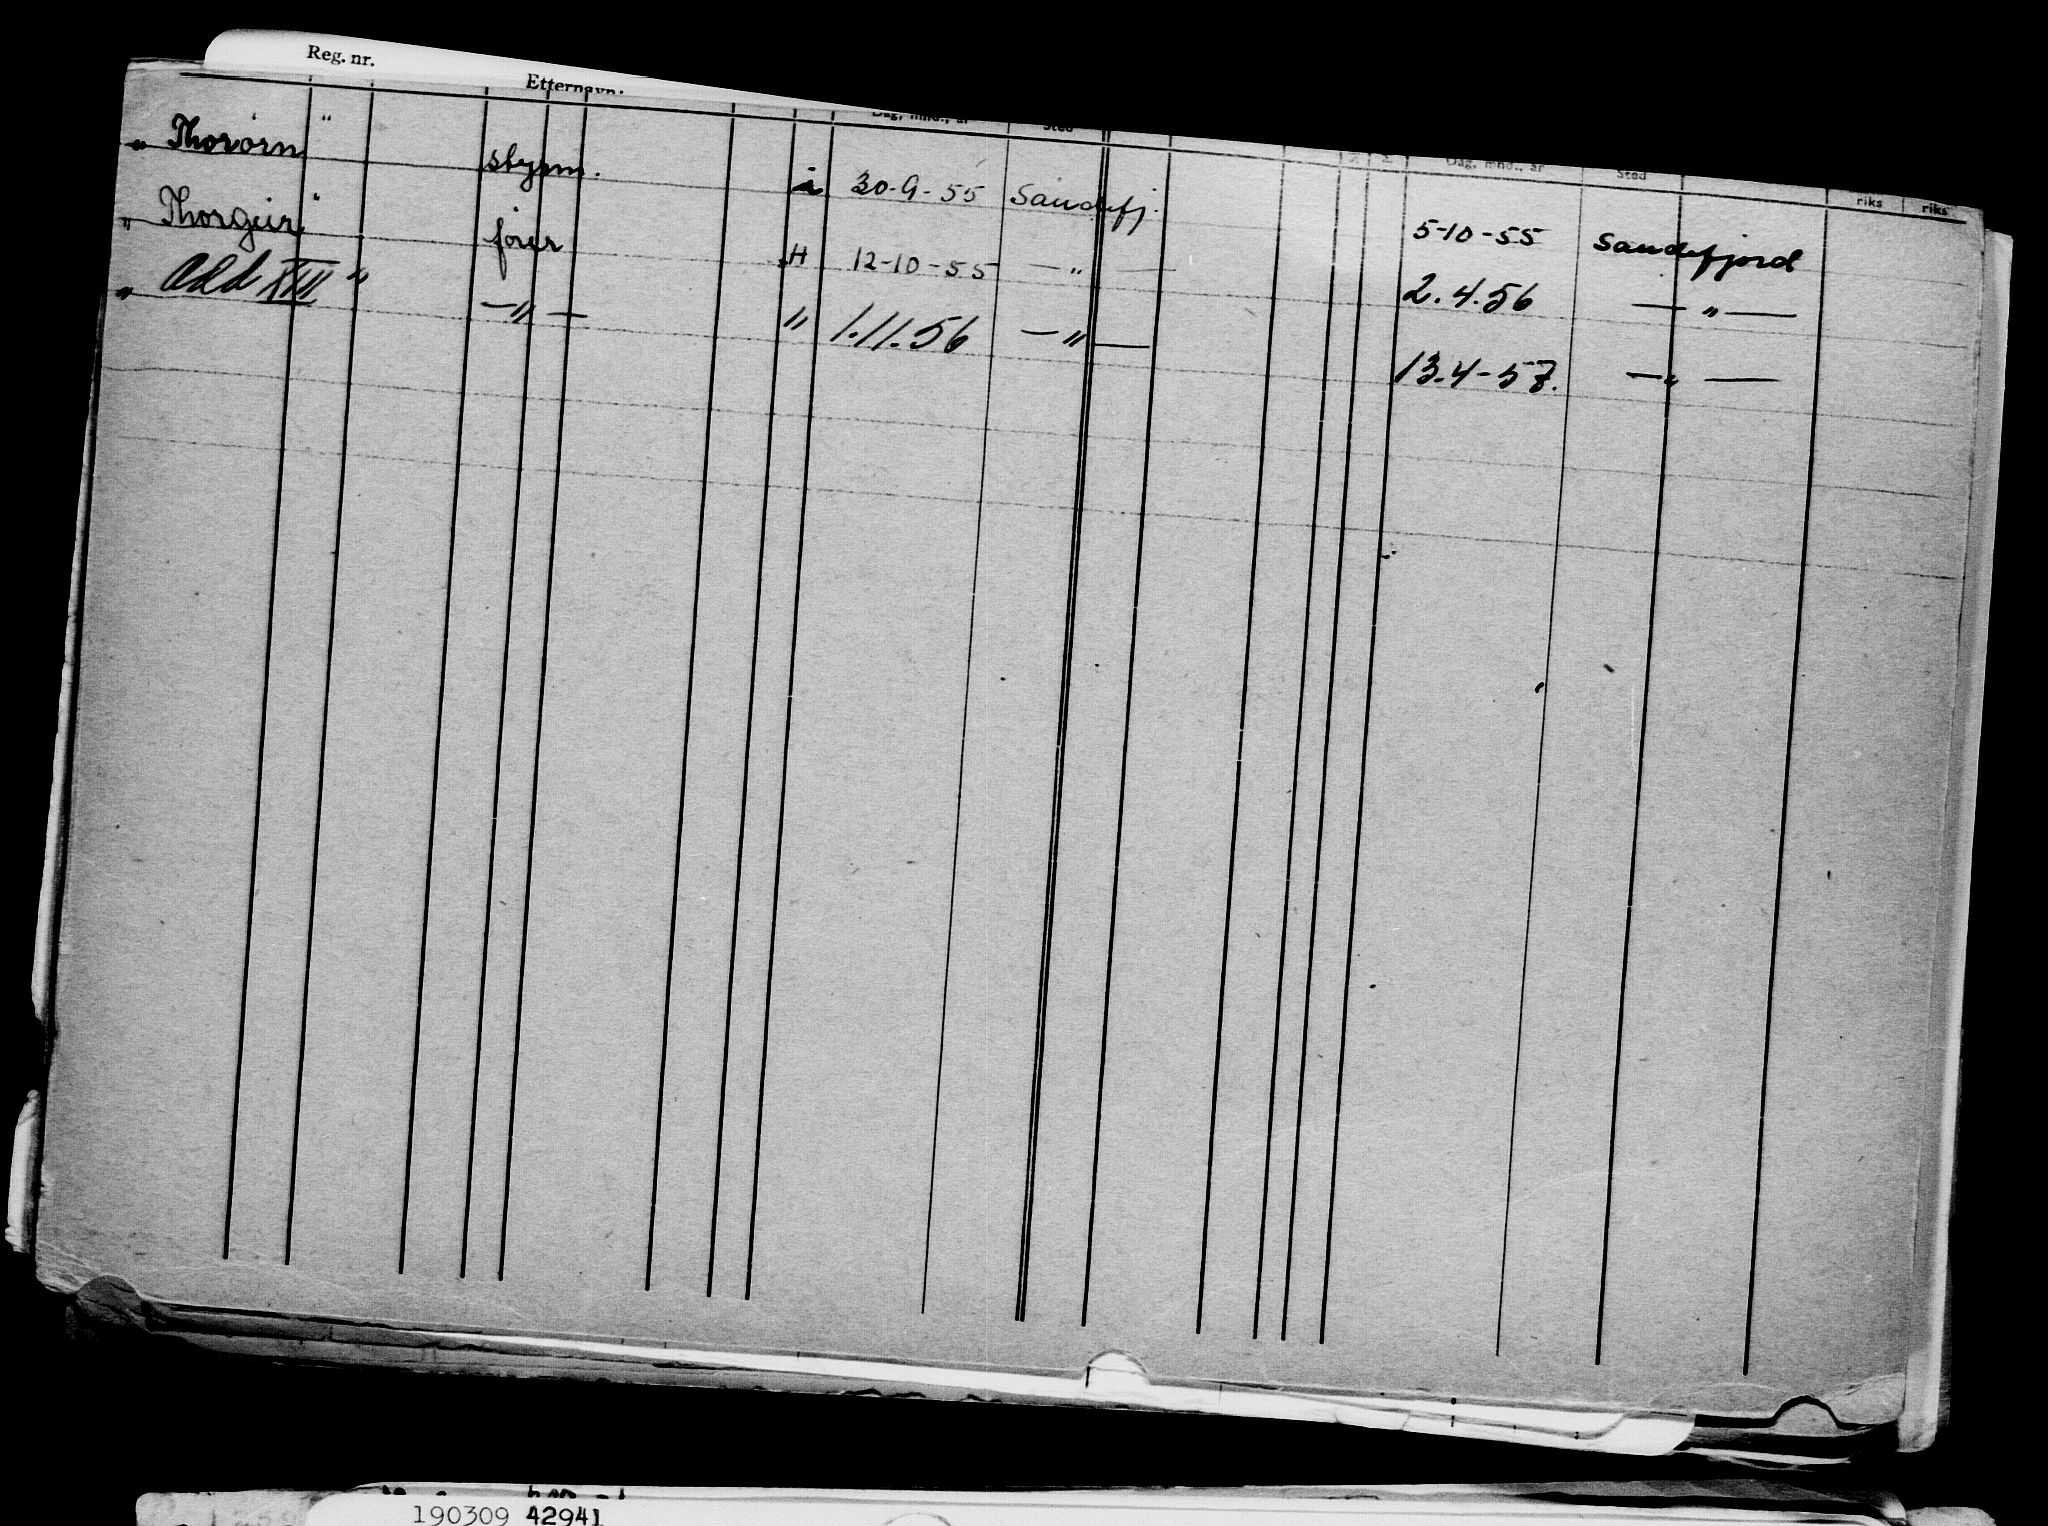 Reg. nr.
Etternavn:
Dag, mnd., år Sted Dag, mnd., år Sted riks riks
" Thorørn " styrm. 30-9-55 Sandefj. 5-10-55 Sandefjord
" Thorgeir " fører H 12-10-55 — " — 2.4.56 — " —
" Odd XIII " — " — " 1.11.56 — " — 13.4-57. — " —
190309 42941